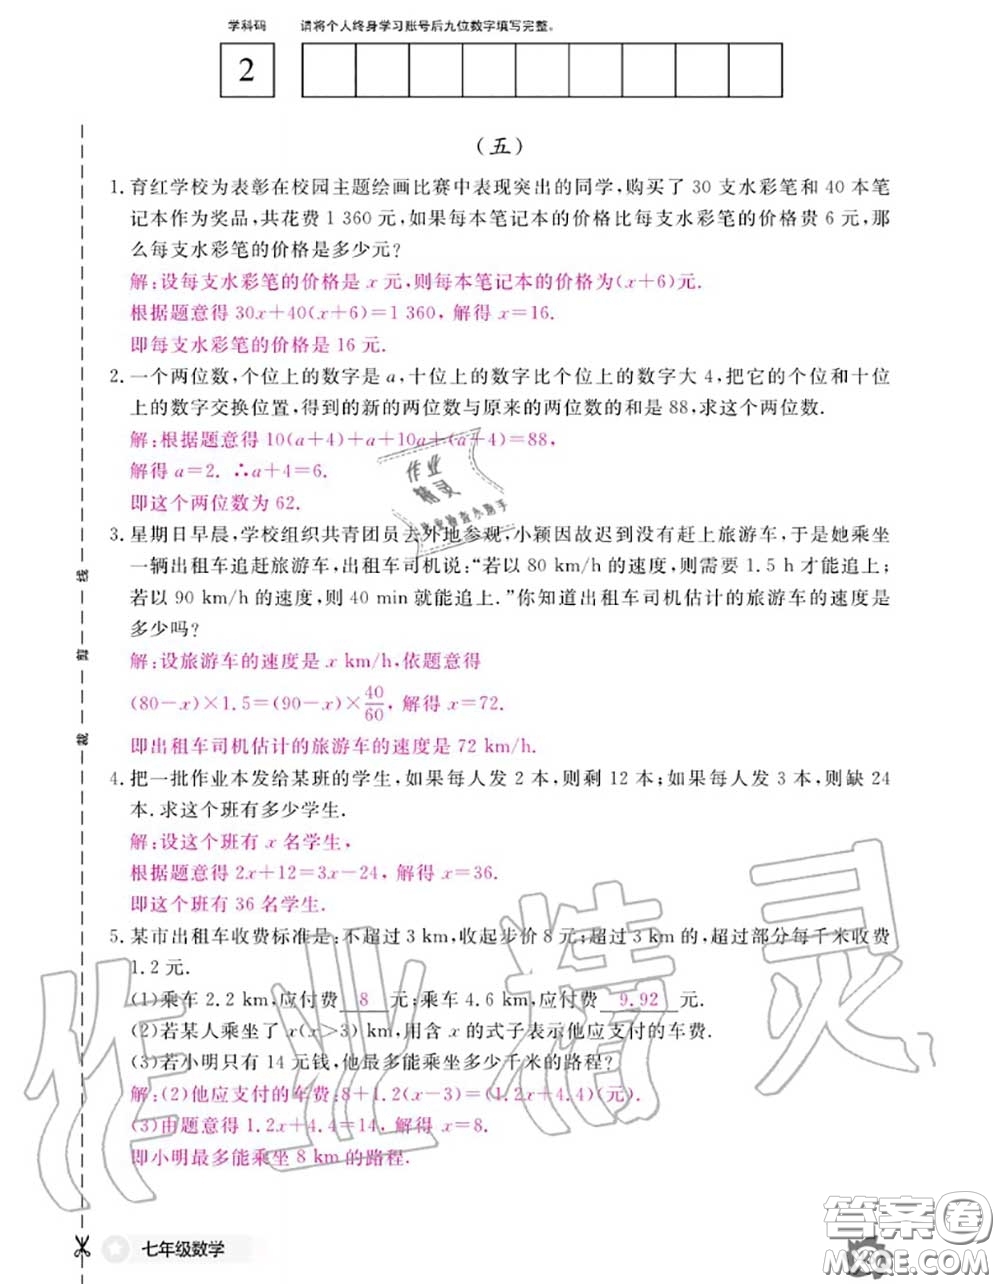 学科码 请将个人终身学习账号后九位数字填写完整。
2
(五)
1. 育红学校为表彰在校园主题绘画比赛中表现突出的同学,购买了 30 支水彩笔和 40 本笔
记本作为奖品,共花费 1 360 元,如果每本笔记本的价格比每支水彩笔的价格贵 6 元,那
么每支水彩笔的价格是多少元?
解:设每支水彩笔的价格是 x 元,则每本笔记本的价格为(x+6)元.
根据题意得 30x+40(x+6)=1 360, 解得 x=16.
即每支水彩笔的价格是 16 元.
2. 一个两位数,个位上的数字是 a,十位上的数字比个位上的数字大 4,把它的个位和十位
上的数字交换位置,得到的新的两位数与原来的两位数的和是 88,求这个两位数.
解:根据题意得 10(a+4)+a+10a+(a+4)=88,
解得 a=2. ∴a+4=6.
即这个两位数为 62.
3. 星期日早晨,学校组织共青团员去外地参观,小颖因故迟到没有赶上旅游车,于是她乘坐
一辆出租车追赶旅游车,出租车司机说:“若以 80 km/h 的速度,则需要 1.5 h 才能追上;
若以 90 km/h 的速度,则 40 min 就能追上.”你知道出租车司机估计的旅游车的速度是
多少吗?
解:设旅游车的速度是 x km/h,依题意得
(80-x)×1.5=(90-x)×40/60, 解得 x=72.
即出租车司机估计的旅游车的速度是 72 km/h.
4. 把一批作业本发给某班的学生,如果每人发 2 本,则剩 12 本;如果每人发 3 本,则缺 24
本.求这个班有多少学生.
解:设这个班有 x 名学生,
根据题意得 2x+12=3x-24, 解得 x=36.
即这个班有 36 名学生.
5. 某市出租车收费标准是:不超过 3 km,收起步价 8 元;超过 3 km 的,超过部分每千米收费
1.2 元.
(1)乘车 2.2 km,应付费 8 元;乘车 4.6 km,应付费 9.92 元.
(2)若某人乘坐了 x(x>3) km,用含 x 的式子表示他应支付的车费.
(3)若小明只有 14 元钱,他最多能乘坐多少千米的路程?
解:(2)他应支付的车费:8+1.2(x-3)=(1.2x+4.4)(元).
(3)由题意得 1.2x+4.4=14, 解得 x=8.
即小明最多能乘坐 8 km 的路程.
线
剪
裁
作业精灵
作业
精灵
七年级数学
答案卷